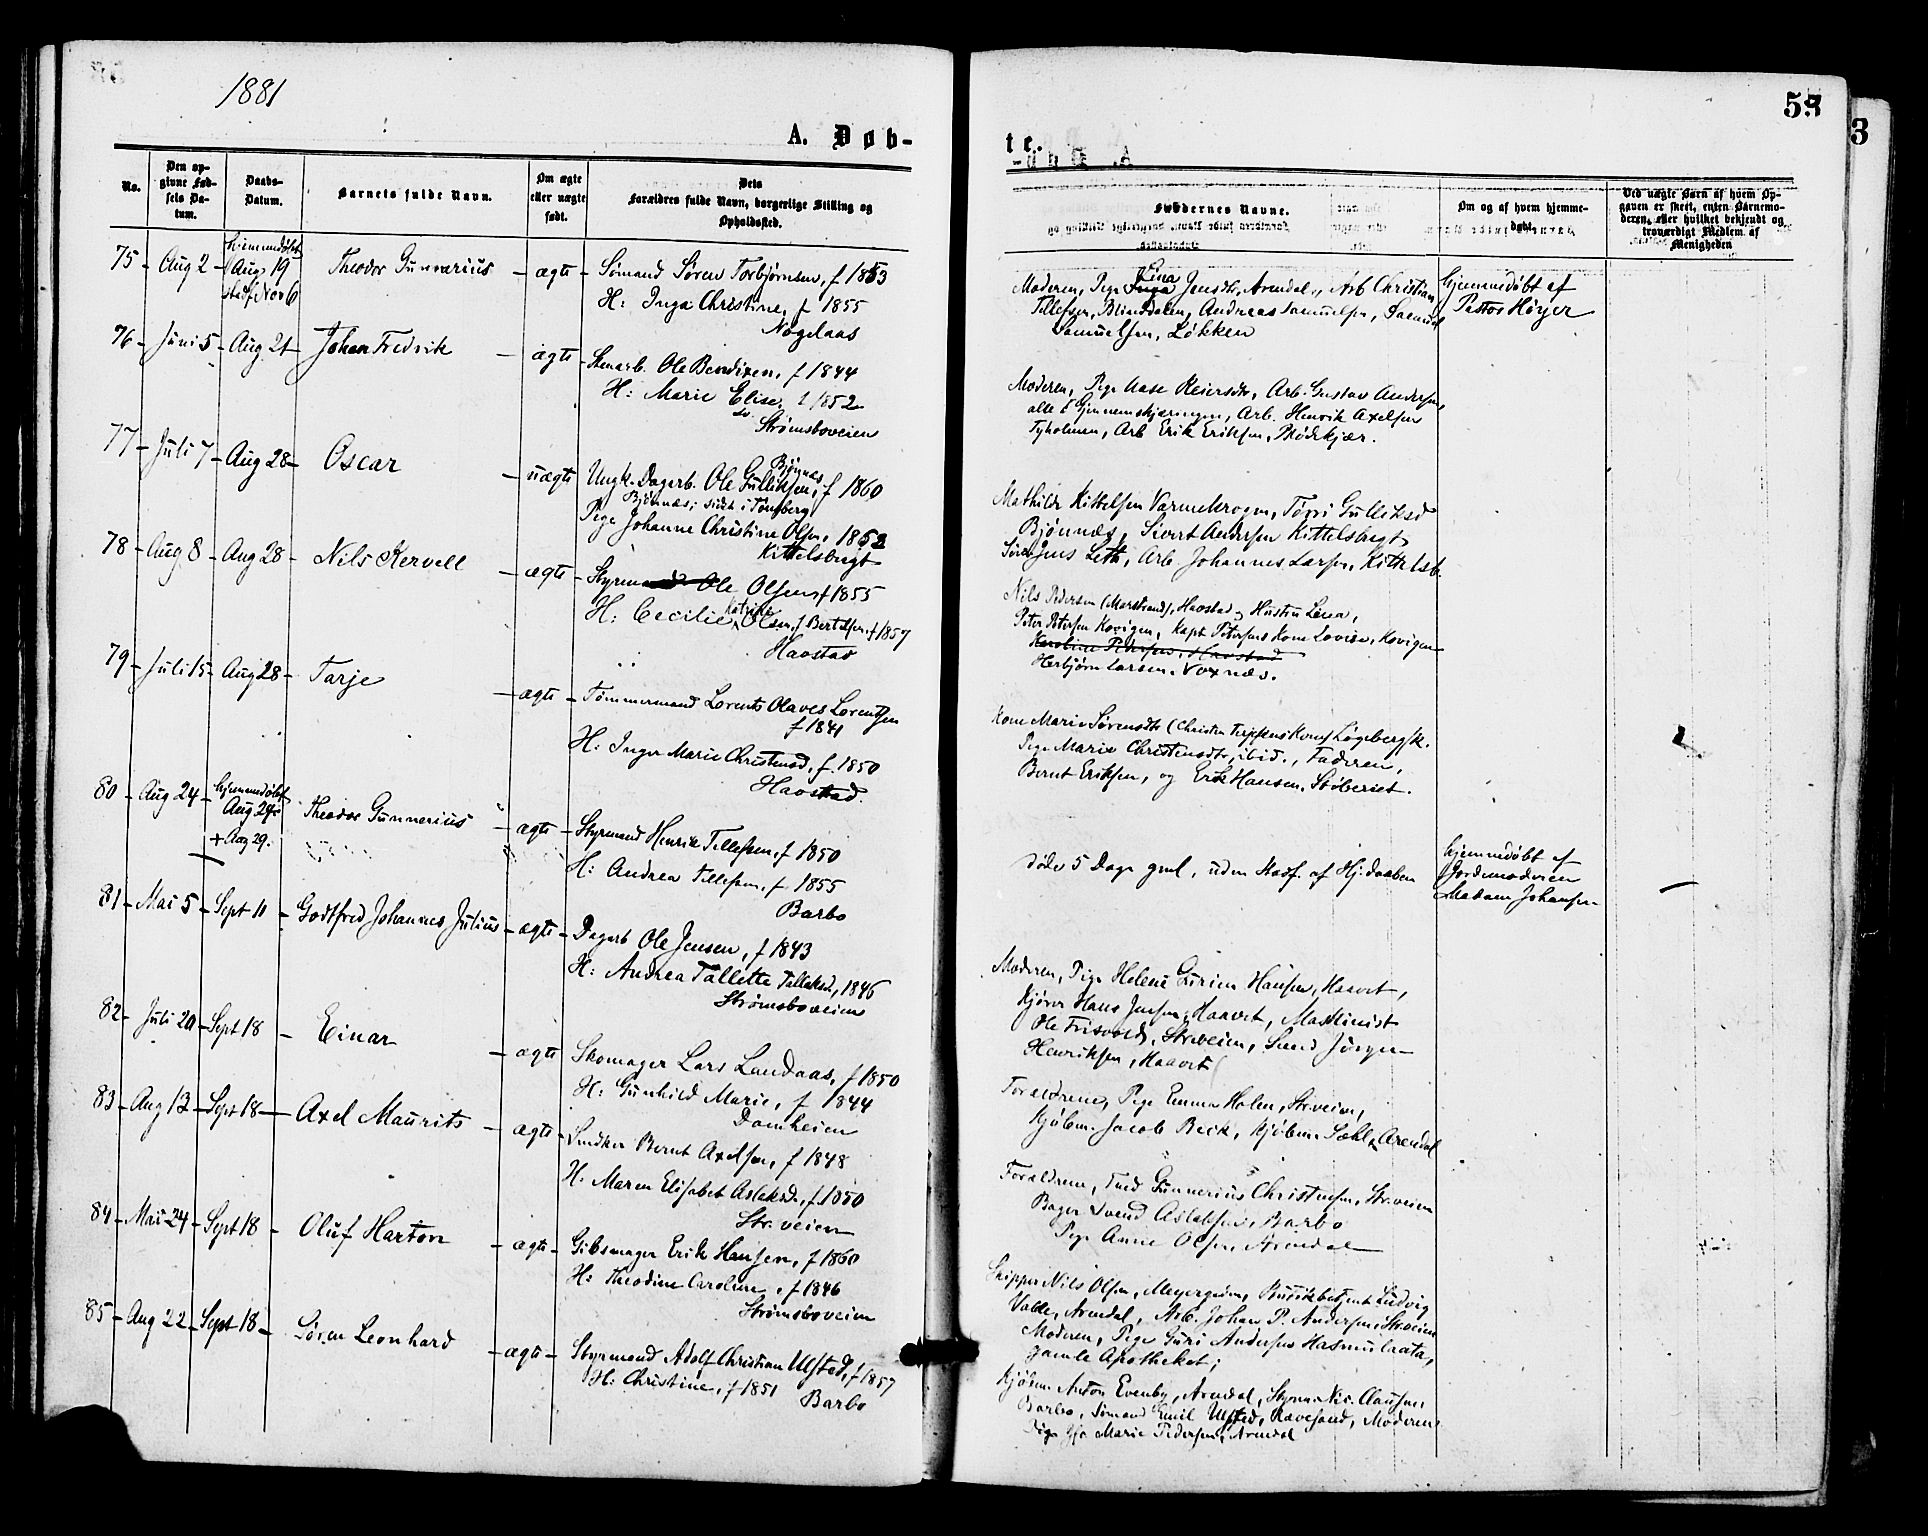 1881
53
3
A. Døb-
te.
No.
Den op-
givne Fød-
sels Da-
tum.
Daabs-
Datum.
Barnets fulde Navn.
Om ægte
eller uægte
født.
Dets
Forældres fulde Navn, borgerlige Stilling og
Opholdssted.
Faddernes Navne.
Om og af hvem hjemme-
døbt.
Ved uægte Barn af hvem Op-
gaven er skeet, enten Barnemo-
deren, eller hvilket bekjendt og
troværdigt Medlem af
Menigheden
75 Aug 2 hjemmedøbt
Aug 19
stadf Nov 6
Theodor Gunnarius ægte Sømand Søren Torbjørnsen, f 1853
H: Inga Christine, f 1855
Nøgelaas
Moderen, Pige Lina Jensdtr, Arendal, Arb Christian
Tellefsen, Blinddalen, Andreas Samuelsen, Samuel
Samuelsen, Løkken
hjemmedøbt af
Pastor Høyer
76 Juni 5 Aug 21 Johan Fredrik ægte Stenarb. Ole Bendixen, f 1844
H: Marie Elise, f 1852
Strømsboveien
Moderen, Pige Aase Reiersdtr, Arb. Gustav Andersen,
alle i Gjennemskjæringen, Arb. Henrik Axelsen
Tyholmen, Arb Erik Eriksen, Rødekjær.
77 Juli 7 Aug 28 Oscar uægte Ungk. Dagarb. Ole Gulliksen, f 1860
Bjønnæs
Bjønnæs; sidst i Tønsberg
Pige Johanne Christine Olsen, 1852
Kittelsbugt
Mathilde Kittelsen Varmekrogen, Tørri Gulliksd
Bjønnæs, Sivert Andersen Kittelsbugt
Jens Leth, Arb Johannes Larsen, Kittelsb.
78 Aug 8 Aug 28 Nils Kervell ægte Styrmand Ole Olsen f 1855
H: Cecilie Katrine Olsen, f Bertelsen, f 1857
Havstad
Nils Pedersen (Marstrand), Havstad og Hustru Lena,
Peter Petersen Kovigen, Kapt Petersens Kone Lovise, Kovigen
Karoline Pedersen, Havstad
Herbjørn Larsen, Voxnæs.
79 Juli 15 Aug 28 Tarje ægte Tømmermand Lorents Olaves Lorentsen
f 1841
H: Inger Marie Christensd, f. 1850
Havstad.
Kone Marie Sørensdtr (Christen Kone) Løgebergk.
Pige Marie Christensdtr, ibid., Faderen,
Bernt Eriksen, og Erik Hansen, Støberiet.
80 Aug 24 hjemmedøbt
Aug 24
+ Aug 29.
Theodor Gunnerius ægte Styrmand Henrik Tellefsen, f 1850
H: Andrea Tellefsen, f 1855
Barbo
døde 5 Dage gml, uden Stadf. af Hj.daaben
hjemmedøbt af
Jordemoderen
Madam Johansen
81 Mai 5 Sept 11 Godtfred Johannes Julius ægte Dagarb Ole Jensen, f 1843
H: Andrea Tallette Tallaksd, 1846
Strømsboveien
Moderen, Pige Helene Hansen, Haavet,
Kjører Hans Jensen, Haavet, Maskinist
Ole Frisvold, Strveien, Svend Jørgen
Henriksen, Haavet
82 Juli 20 Sept 18 Einar ægte Skomager Lars Landaas, f 1850
H: Gunhild Marie, f 1844
Damheien
Forældrene, Pige Emma Holm, Strveien,
Kjøbm. Jacob Beck, Kjøbm. Arendal
83 Aug 13 Sept 18 Axel Maurits ægte Snedker Bernt Axelsen, f 1848
H: Maren Elisabet Aslaksd., f. 1850
Str.veien
Forældrene, Gunnerius Christensen, Str.veien
Bager Svend Aslaksen, Barbo
Pige Anne Olsen Arendal
84 Mai 24 Sept 18 Oluf Harton ægte Gibsmager Erik Hansen, f 1860
H: Theodine Caroline, f 1846
Strømsboveien
Skipper Nils Olsen, Meyergården, Ludvig
Valle, Arendal, Arb. Johan P. Andersen, Strveien
Moderen, Pige Guri Andersen
gamle Apotheket;
85 Aug 22 Sept 18 Søren Leonhard ægte Styrmand Adolf Christian Ulsted, f 1857
H: Christine, f 1851
Barbo
Kjøbm Anton Evenby, Arendal, Styrm Nic. Clausen,
Barbo, Sømand Emil Ulsted, Ravesand, Moderen
Pige Marie Pedersen, Arendal